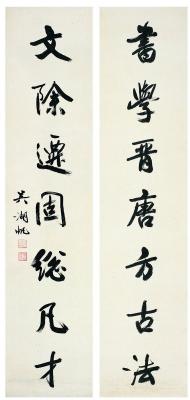 書學晉唐方古法
文除遷固總凡才
吳湖帆